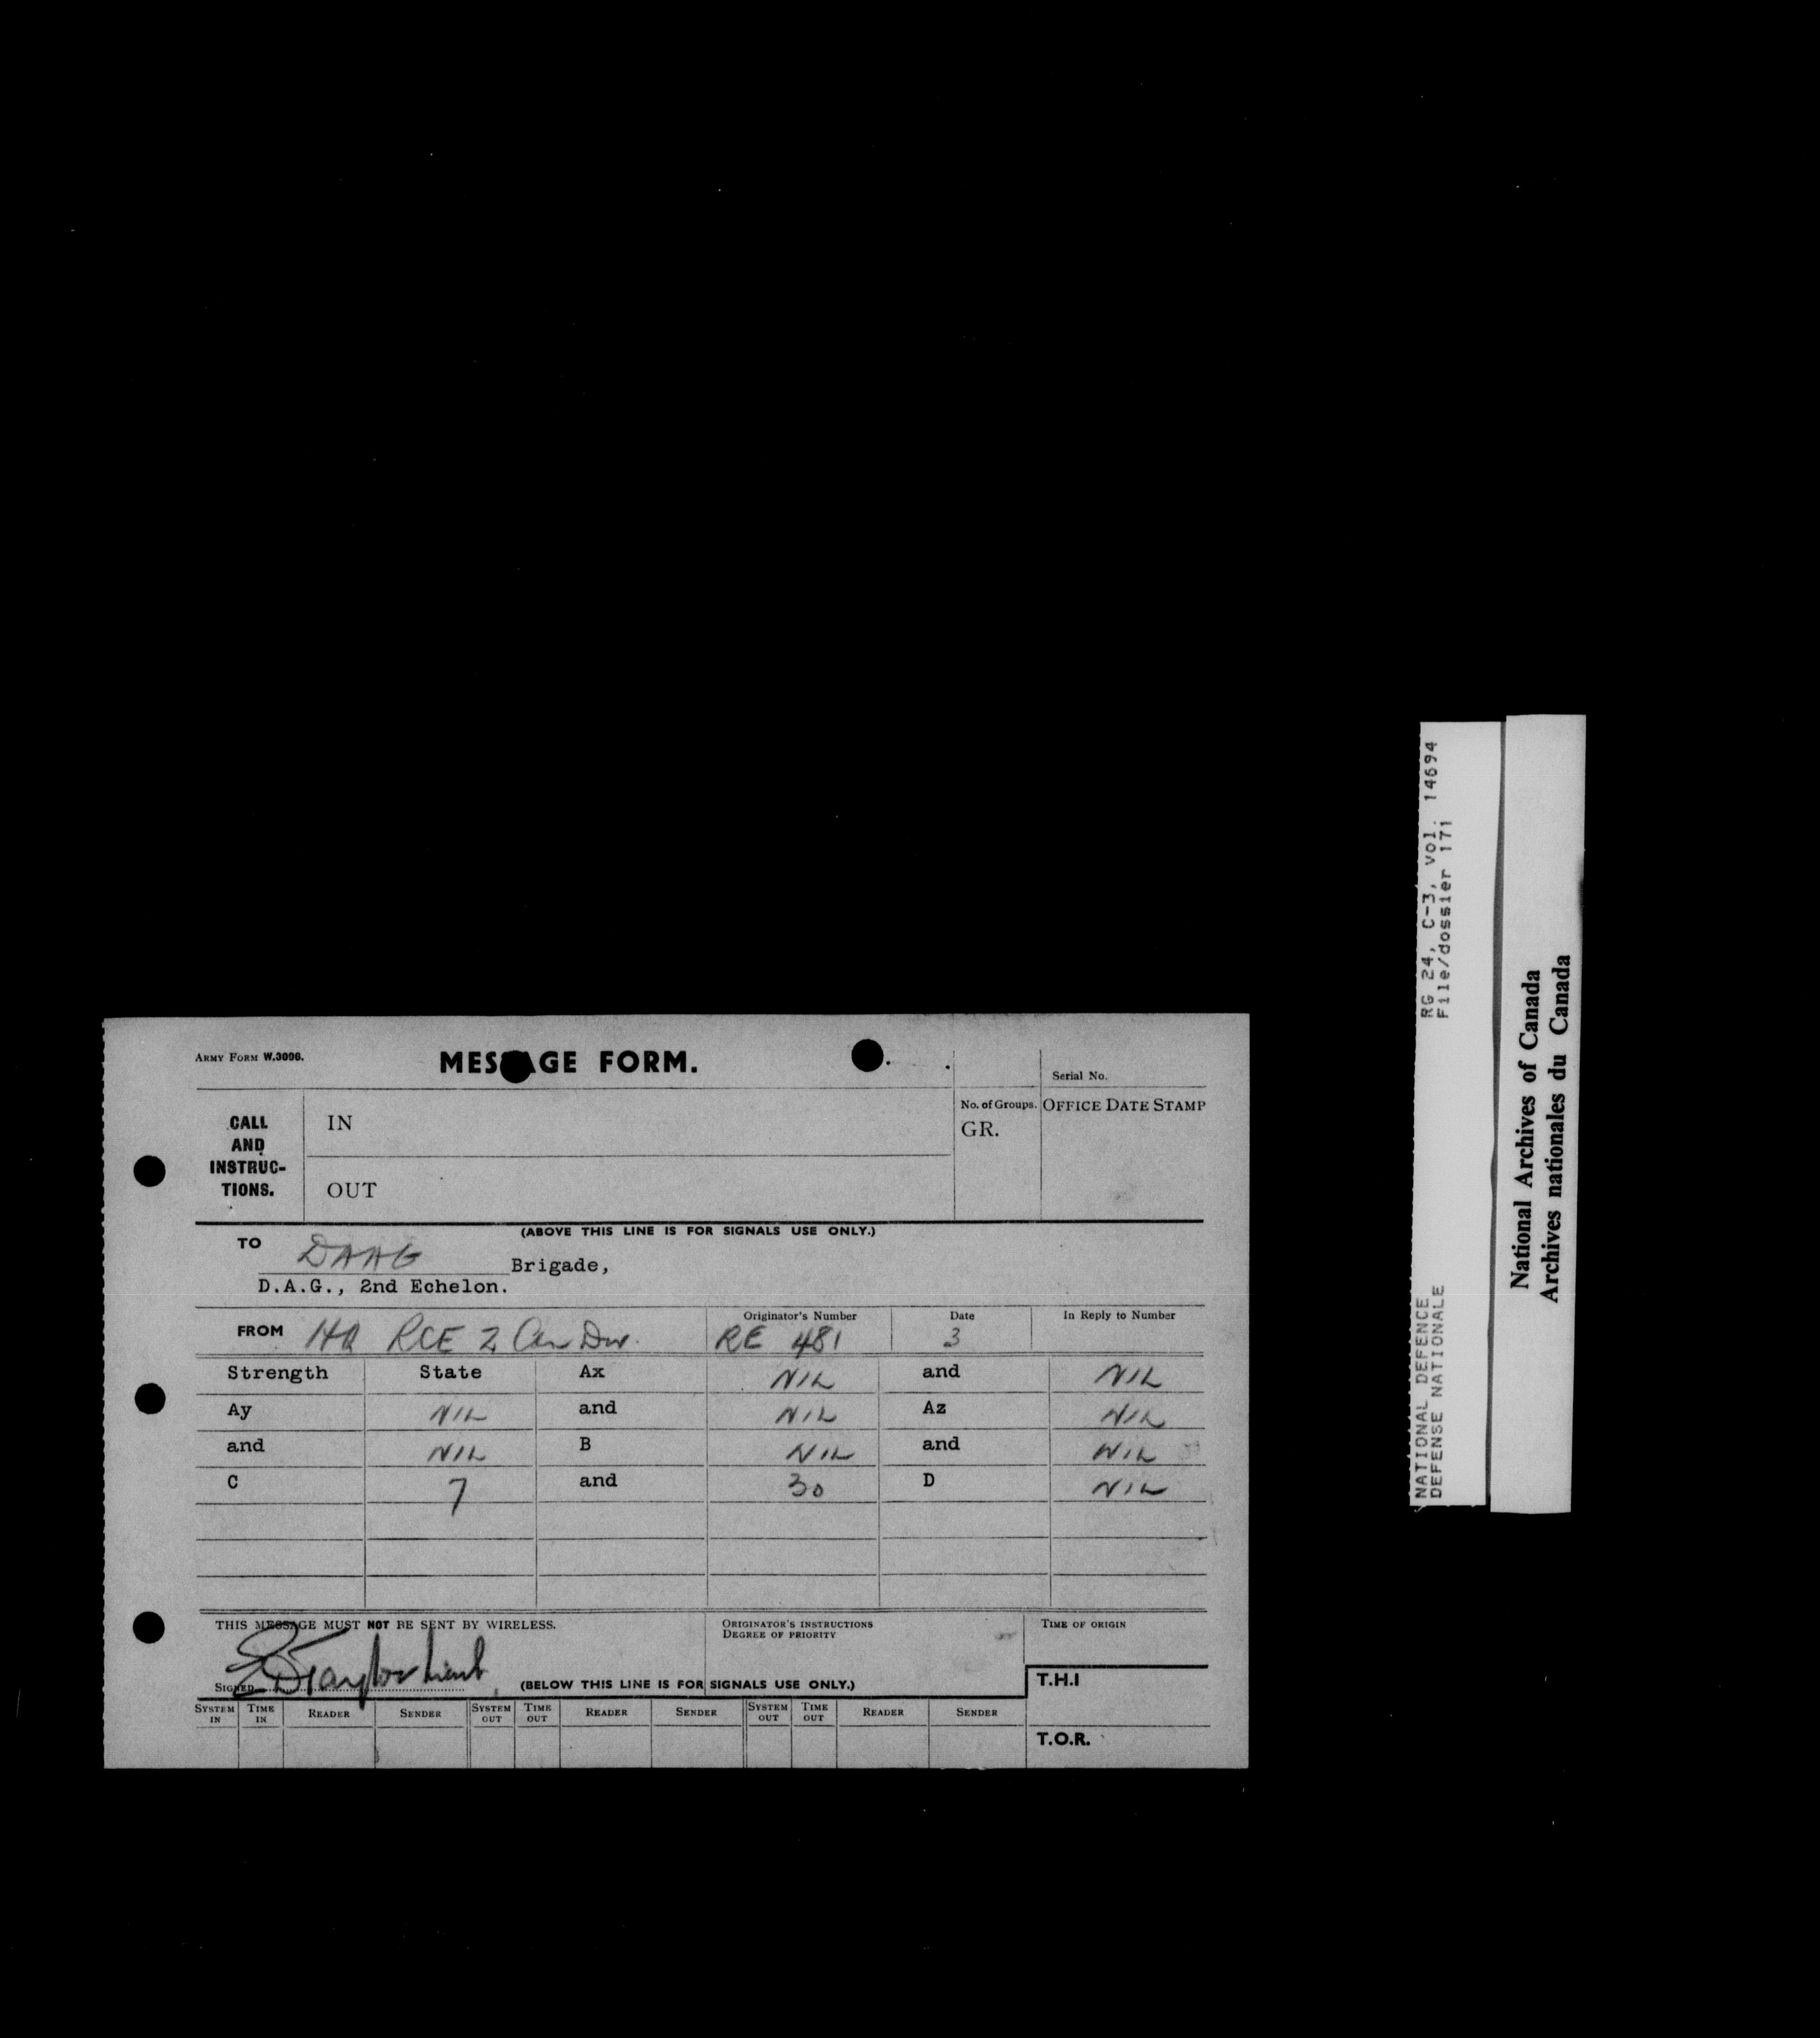 ARMY FORM W.3006.
MESSAGE FORM.
Serial No.
CALL AND INSTRUC-TIONS.
IN
OUT
No. of Groups.
GR.
OFFICE DATE STAMP
(ABOVE THIS LINE IS FOR SIGNALS USE ONLY.)
TO DAAG Brigade,
D.A.G., 2nd Echelon.
FROM HQ RCE 2 Can Div.
Originator's Number RE 481
Date 3
In Reply to Number
Strength State Ax NIL and NIL
Ay NIL and NIL Az NIL
and NIL B NIL and NIL
C 7 and 30 D NIL
THIS MESSAGE MUST NOT BE SENT BY WIRELESS.
ORIGINATOR'S INSTRUCTIONS
DEGREE OF PRIORITY
TIME OF ORIGIN
SIGNED Taylor Lieut
(BELOW THIS LINE IS FOR SIGNALS USE ONLY.)
T.H.I
SYSTEM IN TIME IN READER SENDER SYSTEM OUT TIME OUT READER SENDER SYSTEM OUT TIME OUT READER SENDER
T.O.R.
NATIONAL DEFENCE RG 24, C-3, Vol. 14694
DEFENSE NATIONALE File/dossier 171
National Archives of Canada
Archives nationales du Canada